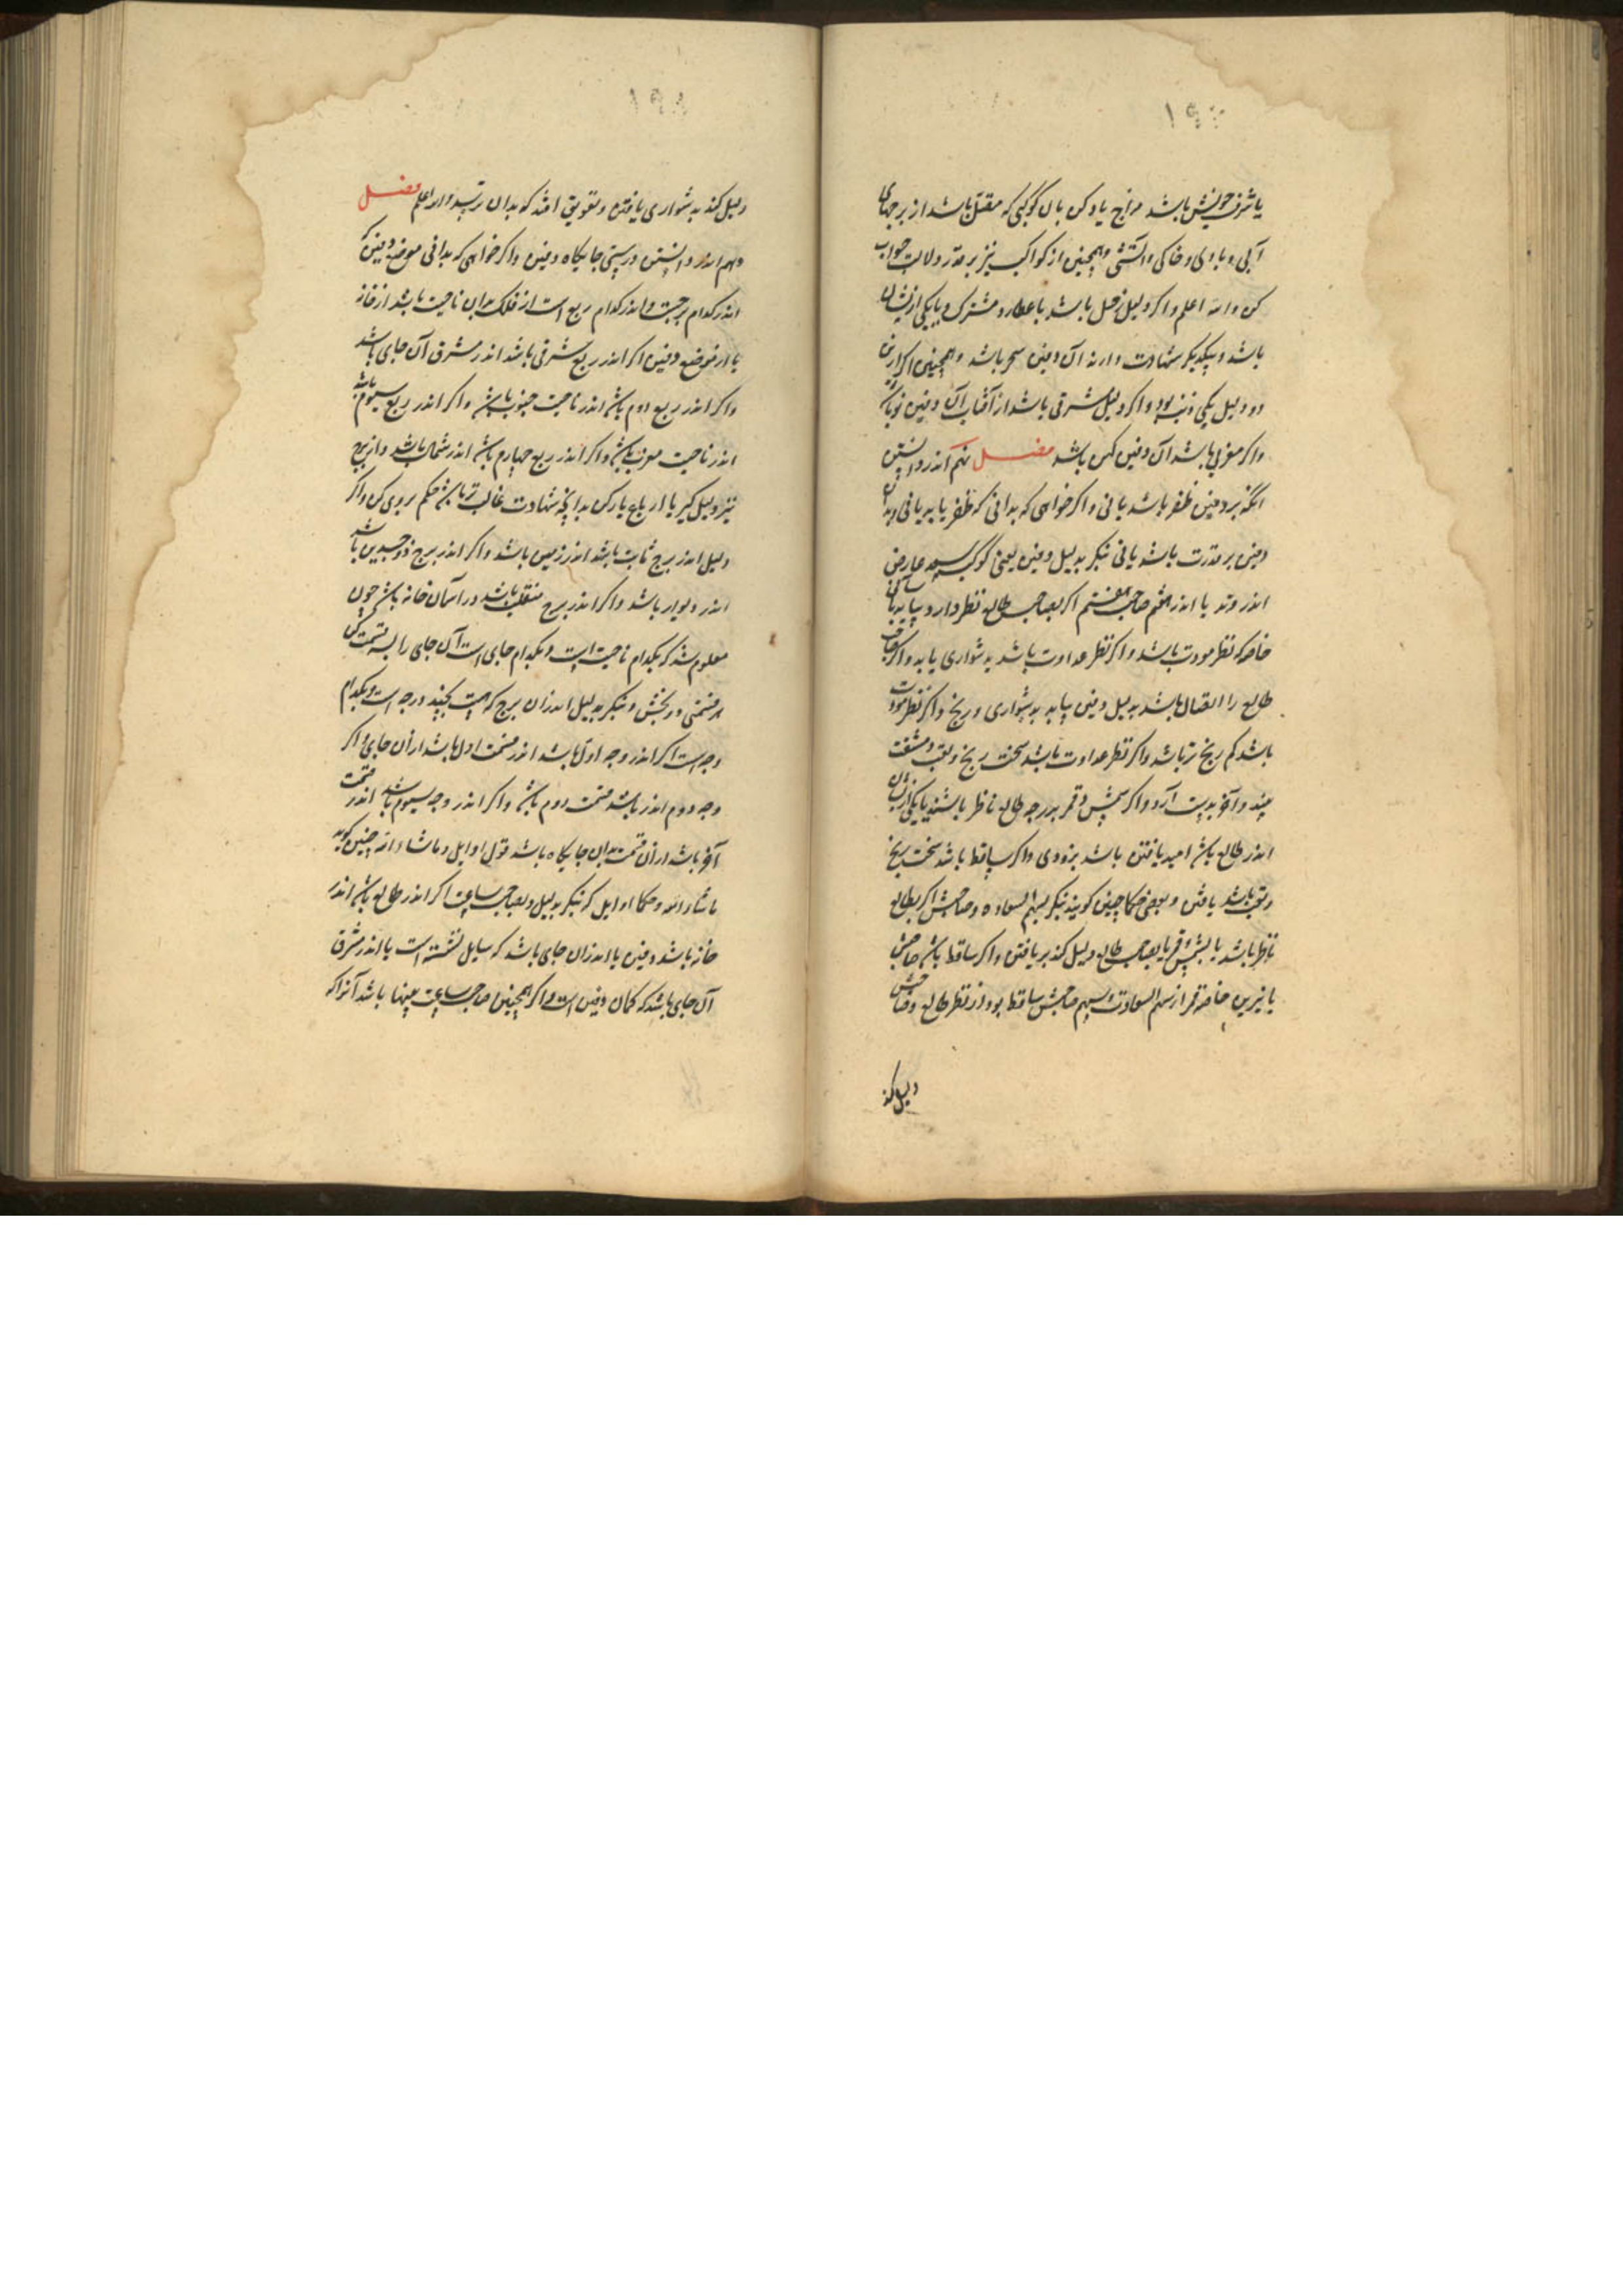 یا شرف خویش باشد مزاج یاد کن بآن کوکبی که متصل باشد از برجهای
آبی و بادی و خاکی و آتشی و همچنین از کواکب نیز بر قدر دلالت جواب
کن والله اعلم واکر دلیل زحل باشد یا عطارد مشترک و یا یکی ازیشان
باشد و بیکدیکر شهادت دارند آن دفین سحر باشد و همچنین اکر ازین
دو دلیل یکی ذنب بود واکر دلیل مشرقی باشد از آفتاب آن دفین نو باشد
واکر مغربی باشد آن دفین کهن باشد فصل نهم اندر دانستن
انکه بر دفین ظفر باشد یا نی واکر خواهی که بدانی که ظفر یابد یا نی و بدان
دفین بر قدرت باشد یا نی بنکر بدلیل دفین یعنی کوکب سعد عارض
اندر وتد یا اندر هفتم صاحب هفتم اکر بصاحب طالع نظر دارد بیابد بآسانی
خاصه که نظر مودت باشد واکر نظر عداوت باشد بدشواری یابد واکر صاحب
طالع را اتصال باشد بدلیل دفین بیابد بدشواری و رنج واکر نظر مودت
باشد کم رنج تر باشد واکر نظر عداوت باشد سخت رنج و تعب و مشقت
بیند و آخر بدست آرد واکر شمس و قمر بدرجه طالع ناظر باشند یا یکی ازیشان
اندر طالع باشد امید یافتن باشد بزودی واکر ساقط باشد سخت برنج
و تعب باشد یافتن و بعضی حکما چنین کویند بنکر بسهم السعاده و صاحبش اکر بطالع
ناظر باشد یا بشمس و قمر یا بصاحب طالع دلیل کند بر یافتن واکر ساقط باشد صاحبش
یا نیرین خاصه قمر از سهم السعادت و سهم صاحبش ساقط بود از نظر طالع و صاحبش
دلیل کند
۱۹۸
دلیل کند بدشواری یافتن و تعویق افتد که بدان نرسد والله اعلم فصل
دهم اندر دانستن درستی جایکاه دفین واکر خواهی که بدانی موضع دفین که
اندر کدام برجست و اندر کدام ربع است از فلک بدان ناحیت باشد از خانه
یا از موضع دفین اکر اندر ربع شرقی باشد اندر مشرق آن جای باشد
واکر اندر ربع دوم باشد اندر ناحیت جنوب باشد واکر اندر ربع سیوم باشد
اندر ناحیت مغرب باشد واکر اندر ربع چهارم باشد اندر شمال باشد و از برج
نیز دلیل کیر با ارباع یار کن بدانچه شهادت غالب تر باشد حکم بر وی کن واکر
دلیل اندر برج ثابت باشد اندر زمین باشد واکر اندر برج ذوجسدین باشد
اندر دیوار باشد واکر اندر برج منقلب باشد در آسمان خانه باشد چون
معلوم شد که بکدام ناحیت است و بکدام جای است آن جای را بسه قسمت کن
هر قسمتی در بخش و بنکر بدلیل اندران برج که هست بچند درجه است و بکدام
وجه است اکر اندر وجه اول باشد اندر قسمت اول باشد از آن جای واکر
وجه دوم اندر باشد قسمت دوم باشد واکر اندر وجه سیوم باشد اندر قسمت
آخر باشد از آن قسمت بدان جایکاه باشد قول اوایل و ماشاء الله چنین کوید
ماشاء الله و حکماء اوایل که بنکر بدلیل و بصاحب ساعت اکر اندر طالع باشد اندر
خانه باشد دفین یا اندران جای باشد که سایل نشسته است یا اندر مشرق
آن جای باشد که کمان دفین است و اکر همچنین صاحب ساعت بپنهان باشد آنرا که